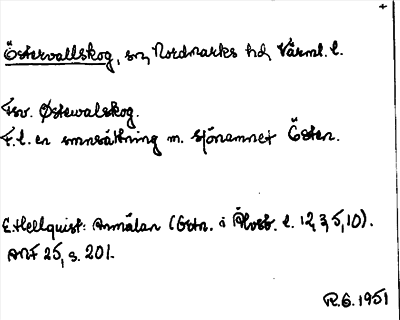 Östervallskog, sn, Nordmarks hd, Värml. l.
Fsv. Østewalskog.
F.l. en smnsättning m. sjönamnet Östen.
E. Hellquist: Anmälan (Ortn. i Älvsb. l. 12, 3, 5, 10).
ANF 25, s. 201.
R.G. 1951